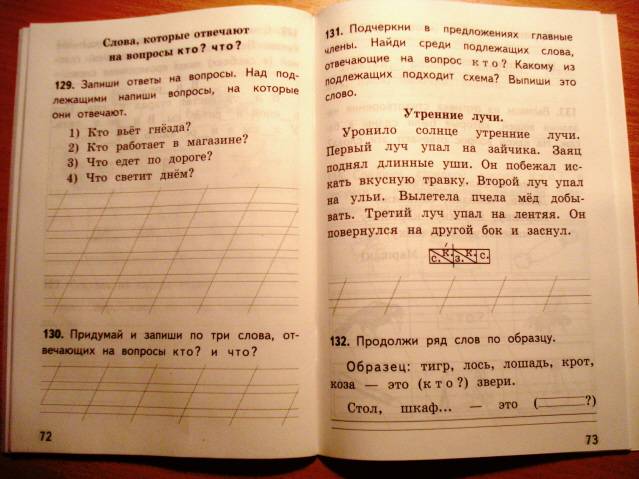 Слова, которые отвечают
на вопросы кто? что?
129. Запиши ответы на вопросы. Над под-
лежащими напиши вопросы, на которые
они отвечают.
1) Кто вьёт гнёзда?
2) Кто работает в магазине?
3) Что едет по дороге?
4) Что светит днём?
130. Придумай и запиши по три слова, от-
вечающих на вопросы кто? и что?
72
131. Подчеркни в предложениях главные
члены. Найди среди подлежащих слова,
отвечающие на вопрос кто? Какому из
подлежащих подходит схема? Выпиши это
слово.
Утренние лучи.
Уронило солнце утренние лучи.
Первый луч упал на зайчика. Заяц
поднял длинные уши. Он побежал ис-
кать вкусную травку. Второй луч упал
на ульи. Вылетела пчела мёд добы-
вать. Третий луч упал на лентяя. Он
повернулся на другой бок и заснул.
с. к. з. к. с.
132. Продолжи ряд слов по образцу.
Образец: тигр, лось, лошадь, крот,
коза — это (кто?) звери.
Стол, шкаф... — это ( ?)
73